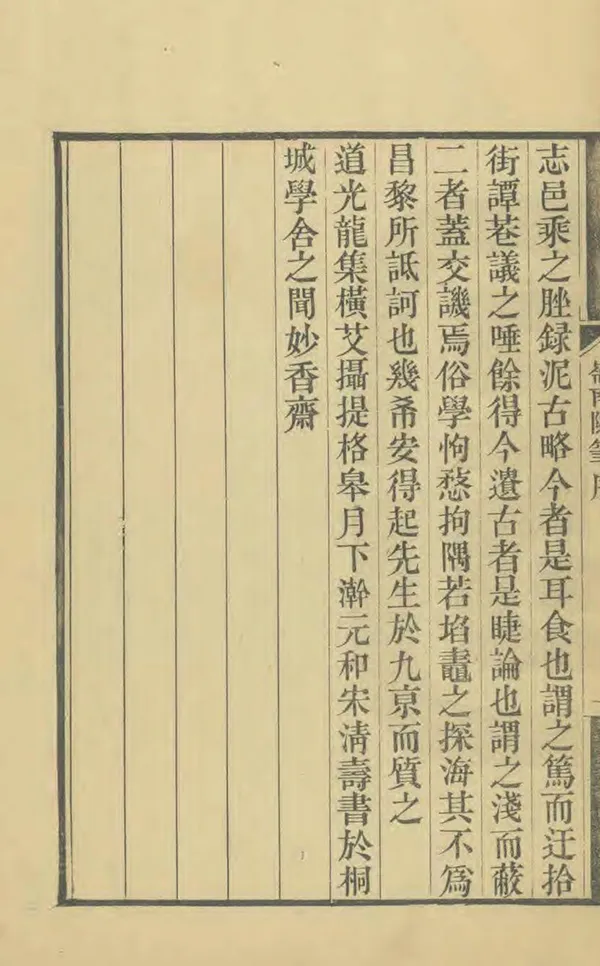 志邑乘之脞録泥古略今者是耳食也謂之篤而迂拾
街譚巷議之唾餘得今遺古者是睫論也謂之淺而蔽
二者蓋交譏焉俗學怐愗拘隅若埳鼃之探海其不爲
昌黎所詆訶也幾希安得起先生於九京而質之
道光龍集橫艾攝提格皋月下澣元和宋清壽書於桐
城學舍之聞妙香齋
南隨筆序